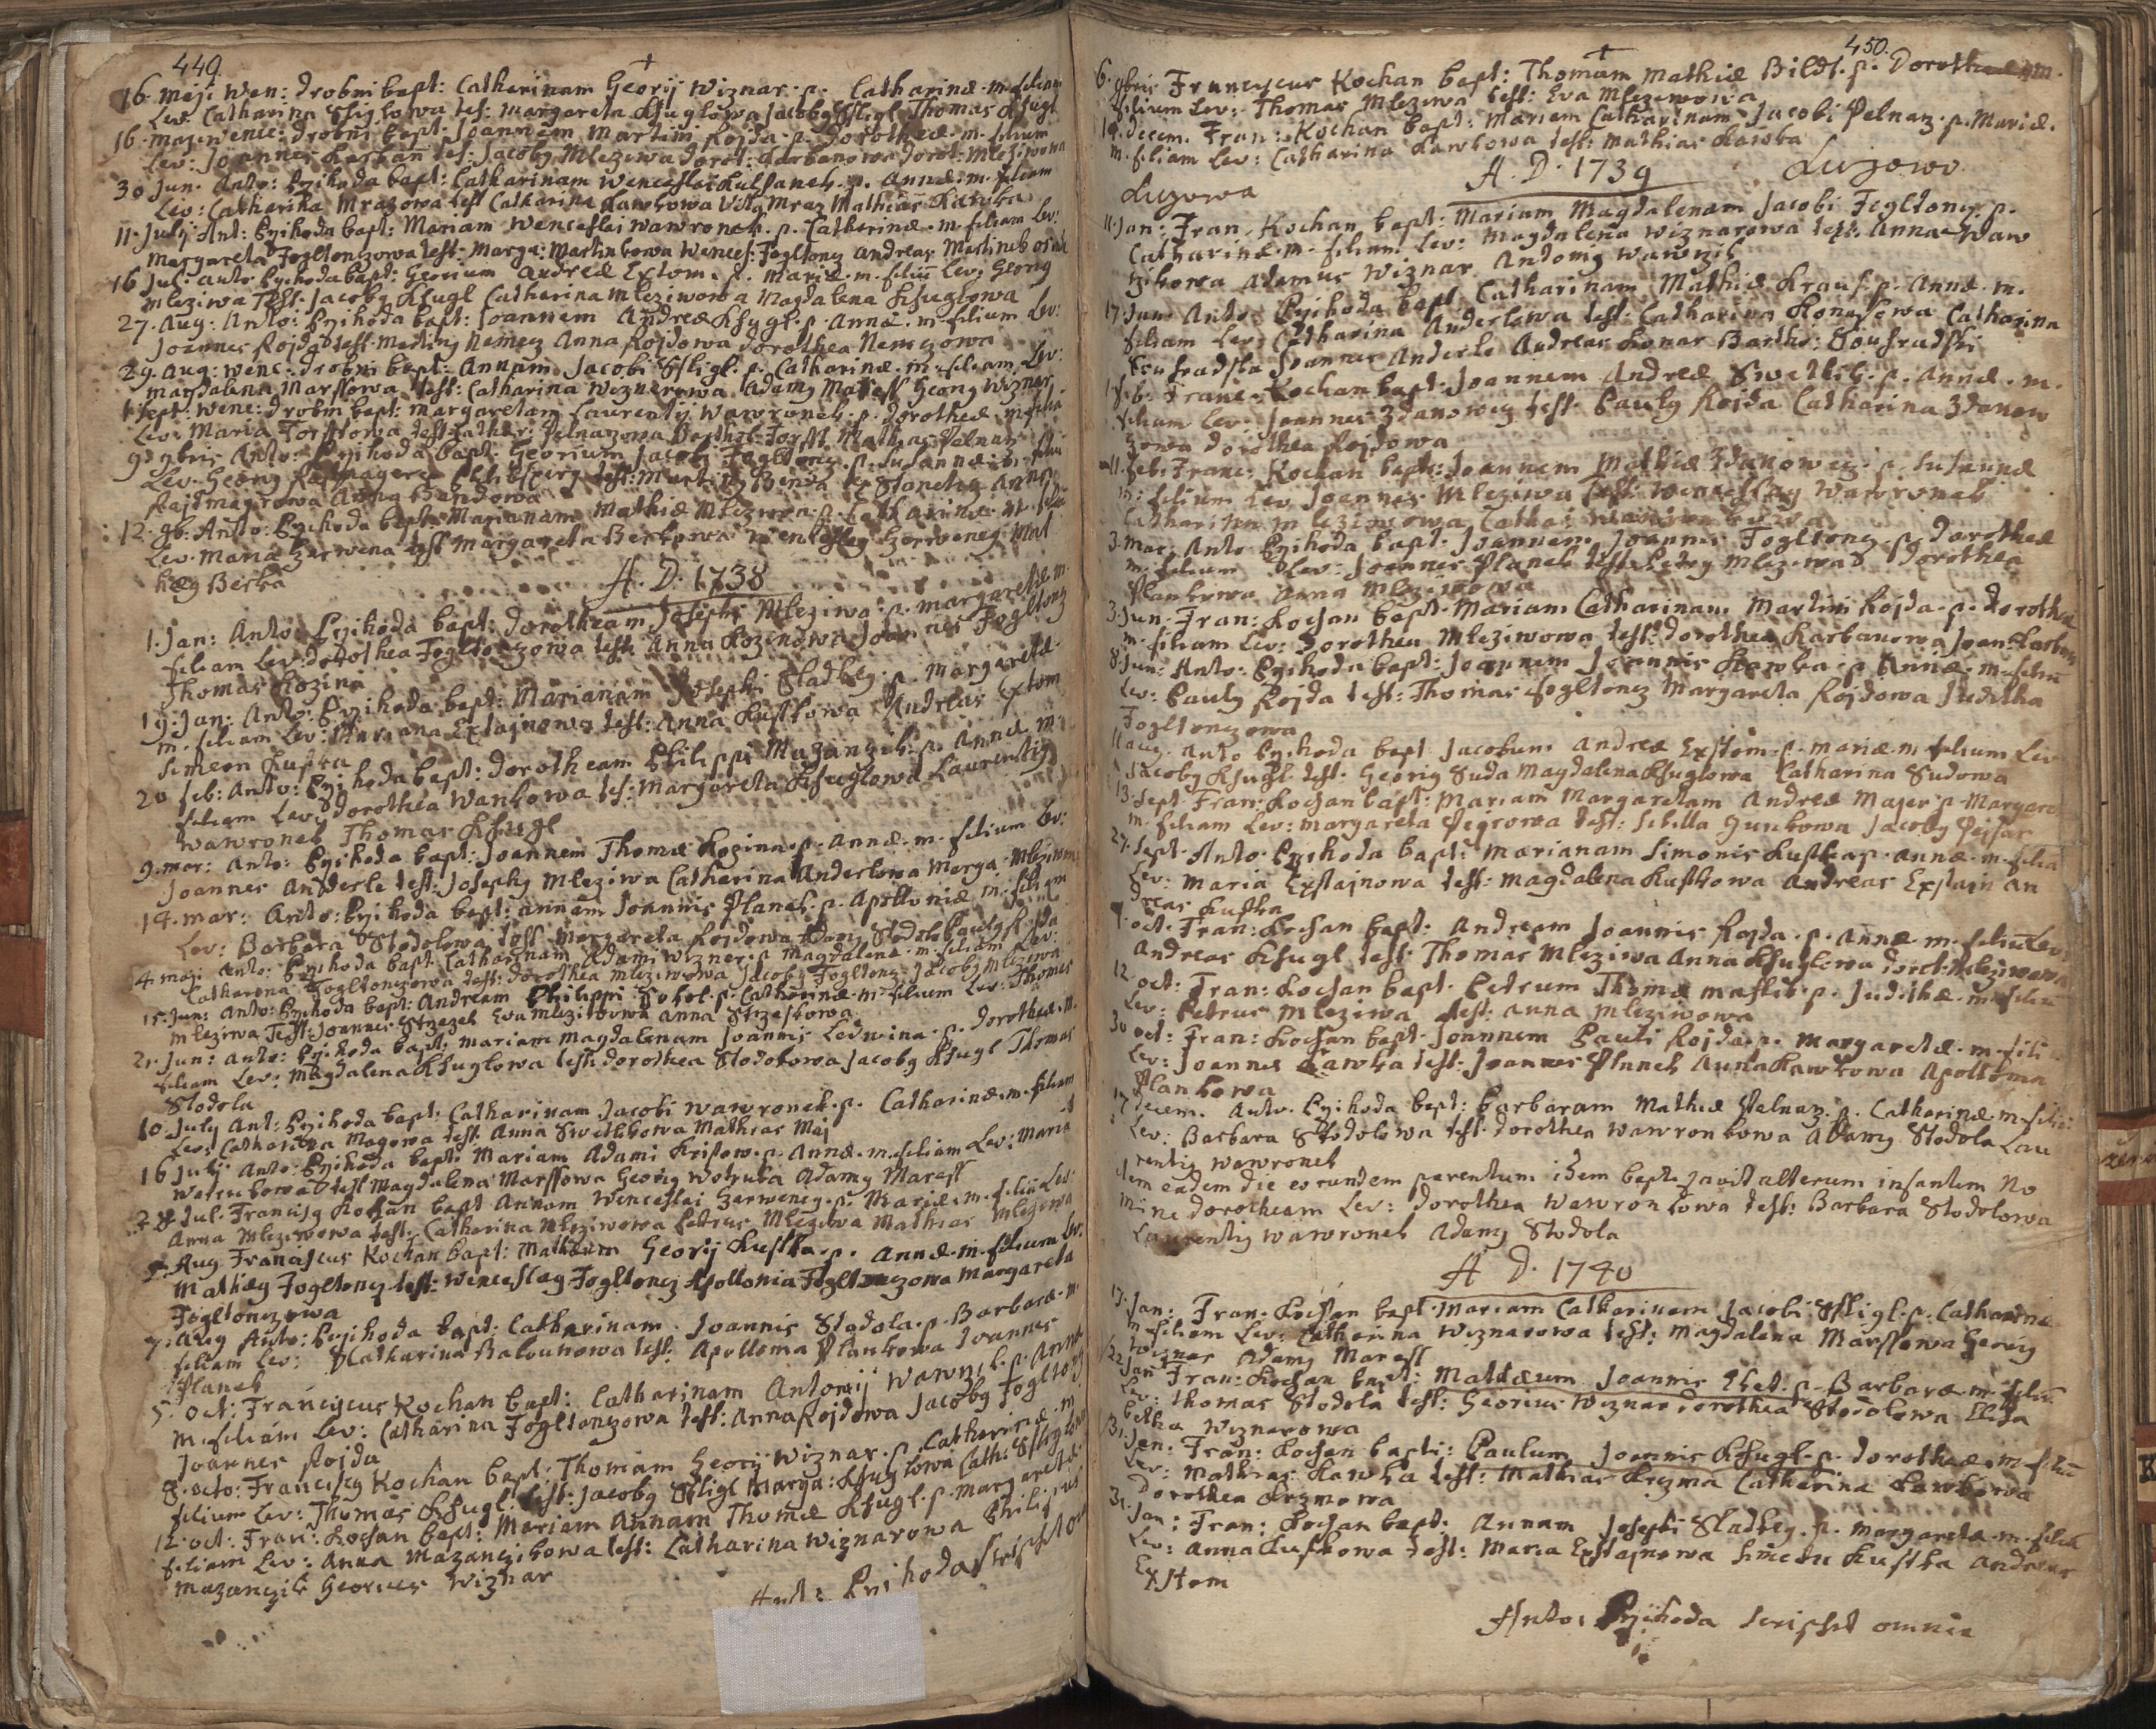 449.
16. Maji Wen: Drobni bapt: Catharinam Georij Wiznar. p. Catharinæ. m. filiam
Lev: Catharina Sstiglowa test: Margareta Kssuglowa Jacobg Sstigl Thomas Kssugl
16. Maji Wence: Drobni bapt: Joannem Martini Rojda. p. Dorotheæ. m. filium
Lev: Joannes Karban tes: Jacobg Mleziwa Dorot: Karbanowa Dorot: Mleziwowa
30 Jun: Anto: Przihoda bapt: Catharinam Wenceslai p. Annæ. m. filiam
Lev: Catharina Mrazowa test Catharina Kawkowa Vitg Mraz Mathias Kawka
11. Julij Ant: Przihoda bapt: Mariam Wenceslai Wawronek. p. Catherinæ. m. filiam Lev:
Margareta Fogltonczowa test: Marga: Martinkowa Wences: Fogltoncz Andreas
16 Jul: Anto Przihoda bapt: Georium Andreæ Extom. p. Mariæ. m. filiū Lev: Georg
Mleziwa Test: Jacobg Kssugl Catharina Mleziwowa Magdalena Kssuglowa
27. Aug: Anto: Przihoda bapt: Joannem Andreæ Kssygl. p. Annæ. m. filium Lev:
Joannes Rojda test: Nemecz Anna Rojdowa Dorothea Nemczowa
29. Aug: Wenc: Drobni bapt: Annam Jacobi Sstigl. p. Catharinæ. m. filiam Lev:
Magdalena Marssowa test: Catharina Weznerowa Adamg Maress Georg Wizner
1 Sept: Wenc: Drobni bapt: Margaretam Laurentij Wawronek. p. Dorotheæ. m. filia
Lev: Maria Forsstowa test: Cather: Pelnarzowa Barthol: Forsst Mathias Pelnarz
9. 9bris Anto: Przihoda bapt: Georium Jacobi Fogltoncz. p. Susannæ. m. filiū
Lev: Georg test: Benda
Rajtmagrowa Anna Bendowa
12. 9b: Anto: Przihoda bapt: Marianam Mathiæ Mleziwa. p. Catharinæ. m. filiā
Lev: Maria Zerwena test Margareta Berkowa Wenceslg Zerweneg Mat
hæg Berka
A. D. 1738
1. Jan: Anto: Przihoda bapt: Dorotheam Josephi Mleziwa. p. Margaretæ. m.
filiam Lev: Dorothea Fogltonczowa test: Anna Kozenowa Joannes Fogltoncz
Thomas Kozina
19. Jan: Anto: Przihoda bapt: Marianam Josephi Sladkeg. p. Margaretæ.
m. filiam Lev: Mariana Extajnowa test: Anna Kustkowa Andreas Extom
Simeon Kustka
20 Feb: Anto: Przihoda bapt: Dorotheam Philippi Mazanczik. p. Annæ. m.
filiam Lev: Dorothea Wankowa tes: Margareta Kssuglowa Laurentig
Wawronek Thomas Kssugl
9. Mar: Anto: Przihoda bapt: Joannem Thomæ Kozina. p. Annæ. m. filium Lev:
Joannes Anderle test: Josephg Mleziwa Catharina Anderlowa Marga: Mleziwow
14. Mar: Anto: Przihoda bapt: Annam Joannis Planek. p. Apolloniæ m. filiam
Lev: Barbara Stodolowa test Margareta Rojdowa Adamg Stodola Paulg Rojda
4. Maji Anto: Przihoda bapt: Catharinam Adami Wizner. p. Magdalenæ. m. filiam Lev:
Catharena Fogltonczowa test: Dorothea Mleziwowa Jacobg Fogltoncz Jacobg Mleziwa
15. Jun: Anto: Przihoda bapt: Andream Philippi Sokol. p. Catharinæ. m. filium Lev: Thomas
Mleziwa Test: Joannes Strzezek Eva Mleziwowa Anna Strzeskowa
21. Jun: Anto: Przihoda bapt: Mariam Magdalenam Joannis Ledwina. p. Dorotheæ. m.
filiam Lev: Magdalena Kssuglowa test: Dorothea Stodolowa Jacobg Kssugl Thomas
Stodola
10 July Ant: Przihoda bapt: Catharinam Jacobi Wawronek. p. Catharinæ. m. filiam
Lev: Catharina Magowa test: Anna Swetlikowa Mathias Maj
16 Julij Anto: Przihoda bapt: Mariam Adami Krisow. p. Annæ. m. filiam Lev: Maria
Wotrubowa test Magdalena Marssowa Georg Wotruba Adamg Maress
28 Jul: Francisg Kochan bapt Annam Wenceslai Zerweneg. p. Mariæ. m. filiā Lev:
Anna Mleziwowa test: Catharina Mleziwowa Petrus Mleziwa Mathias Mleziwa
Aug Franciscus Kochan bapt: Mathæum Georij Kustka. p. Annæ. m. filium Lev:
Mathæg Fogltoncz test: Wenceslag Fogltoncz Apollonia Fogltonczowa Margareta
Fogltonczowa
7. Aug Anto: Przihoda bapt: Catharinam Joannis Stodola. p. Barbaræ. m.
filiam Lev: Catharina Balounowa test: Apollonia Plankowa Joannes
Planek
5. Oct: Franciscus Kochan bapt: Catharinam Antonij Wawrzik. p. Annæ
m. filiam Lev: Catharina Fogltonczowa test: Anna Rojdowa Jacobg Fogltoncz
Joannes Rojda
8. Octo: Francisg Kochan bapt: Thomam Georij Wiznar. p. Catherinæ. m.
filium Lev: Thomas Kssugl. test: Jacobg Sstigl Marga: Kssuglowa Cath: Sstiglowa
12. Oct: Fran: Kochan bapt: Mariam Annam Thomæ Kssugl. p. Margaretæ
filiam Lev: Anna Mazanczikowa test: Catharina Wiznarowa Philipus
Mazanczik Georius Wiznar
Ant: Przihoda scripsit om
450.
6. 9bris Franciscus Kochan bapt: Thomam Mathiæ Bildt. p. Dorotheæ m.
filium Lev: Thomas Mleziwa test: Eva Mleziwowa
Decem. Fran: Kochan bapt: Mariam Catharinam Jacobi Pelnarz. p. Mariæ.
m. filiam Lev: Catharina Kawkowa test: Mathias Kawka
A. D. 1739
Luzowo
Luzowa
11. Jan: Fran. Kochan bapt: Mariam Magdalenam Jacobi Fogltoncz. p.
Catharinæ. m. filiam Lev: Magdalena Wiznarowa test: Anna Waw
rzikowa Adamus Wiznar Antonig Wawrzik
17. Jan: Anto: Przihoda bapt: Catharinam Mathiæ Kraus. p. Annæ. m.
filiam Lev: Catharina Anderlowa test: Catharina Catharina
Joannes Anderle Andreas Konar Bartho:
1 Feb: Franc: Kochan bapt: Joannem Andreæ Swetlik. p. Annæ. m.
filium Lev: Joannes Zdanowecz test: Paulg Rojda Catharina Zdanow
zowa Dorothea Rojdowa
11. Feb: Franc: Kochan bapt: Joannem Mathiæ Zdanowecz. p. Susannæ
m: filium Lev: Joannes Mleziwa test: Wenceslag Wawronek
Catharina Mleziwowa Cathar
3. Mar: Anto Przihoda bapt: Joannem Joannis Fogltoncz. p. Dorotheæ
m. filium Lev: Joannes Planek test: Petrg Mleziwa Dorothea
Plankowa Anna Mleziwowa
3. Jun: Fran: Kochan bapt: Mariam Catharinam Martini Rojda. p. Dorotheæ
m. filiam Lev: Dorothea Mleziwowa test: Dorothea Karbanowa Joan: Karban
8. Jun: Anto: Przihoda bapt: Joannem Joannis Kawka. p. Annæ. m. filiū
Lev: Paulg Rojda test: Thomas Fogltoncz Margareta Rojdowa Juditha
Fogltonczowa
11 Aug: Anto Przihoda bapt: Jacobum Andreæ Exstom. p. Mariæ. m filium Lev
Jacobg Kssugl. test: Georig Suda Magdalena Kssuglowa Catharina Sudowa
13. Sept: Fran: Kochan bapt: Mariam Margaretam Andreæ Majer. p. Margaret
m. filiam Lev: Margareta test: Sibilla Jacobg
27. Sept: Anto: Przihoda bapt: Marianam Simonis Kustka. p. Annæ. m. filiā
Lev: Maria Exstajnowa test: Magdalena Kustkowa Andreas Exstajn An
dreas Kustka
9. Oct: Fran: Kochan bapt: Andream Joannis Rojda. p. Annæ. m. filiū Lev:
Andreas Kssugl test: Thomas Mleziwa Anna Kssuglowa Dorot: Mleziwowa
12. Oct: Fran: Kochan bapt: Petrum Thomæ Masstik. p. Judithæ. m. filiū
Lev: Petrus Mleziwa test: Anna Mleziwowa
30 Oct: Fran: Kochan bapt: Joannem Pauli Rojda. p. Margaretæ. m. fili
Lev: Joannes Kawka test: Joannes Planek Anna Kawkowa Apollonia
Plankowa
17 Decem: Anto: Przihoda bapt: Barbaram Mathiæ Pelnarz. p. Catharinæ. m. filiā
Lev: Barbara Stodolowa test: Dorothea Wawronkowa Adamg Stodola Lau
rentig Wawronek
Item eadem die eorundem parentum idem baptizavit alterum infantem No
mine Dorotheam Lev: Dorothea Wawronkowa test: Barbara Stodolowa
Laurentig Wawronek Adamg Stodola
A D. 1740
17. Jan: Fran: Kochan bapt: Mariam Catharinam Jacobi Sstigl. p. Catharinæ
m filiam Lev: Catharina Wiznarowa test: Magdalena Marssowa Georig
Wiznar Adamg Maress
22 Jan Fran: Kochan bapt: Mathæum Joannis p. Barbaræ. m. filiū
Lev: Thomas Stodola test: Georius Wiznar Dorothea Stodolowa Elisa
betha Wiznarowa
31. Jan: Fran: Kochan bapti: Paulum Joannis Kssugl. p. Dorotheæ. m. filiū
Lev: Mathias Kawka test: Mathias Krizma Catharina Kawkowa
Dorothea Krizmowa
31. Jan: Fran: Kochan bapt: Annam Josephi Sladkeg. p. Margaretæ. m. filiā
Lev: Anna Kustkowa test: Maria Exstajnowa Simeon Kustka Andreas
Exstom
Anto: Przihoda scripsit omnia